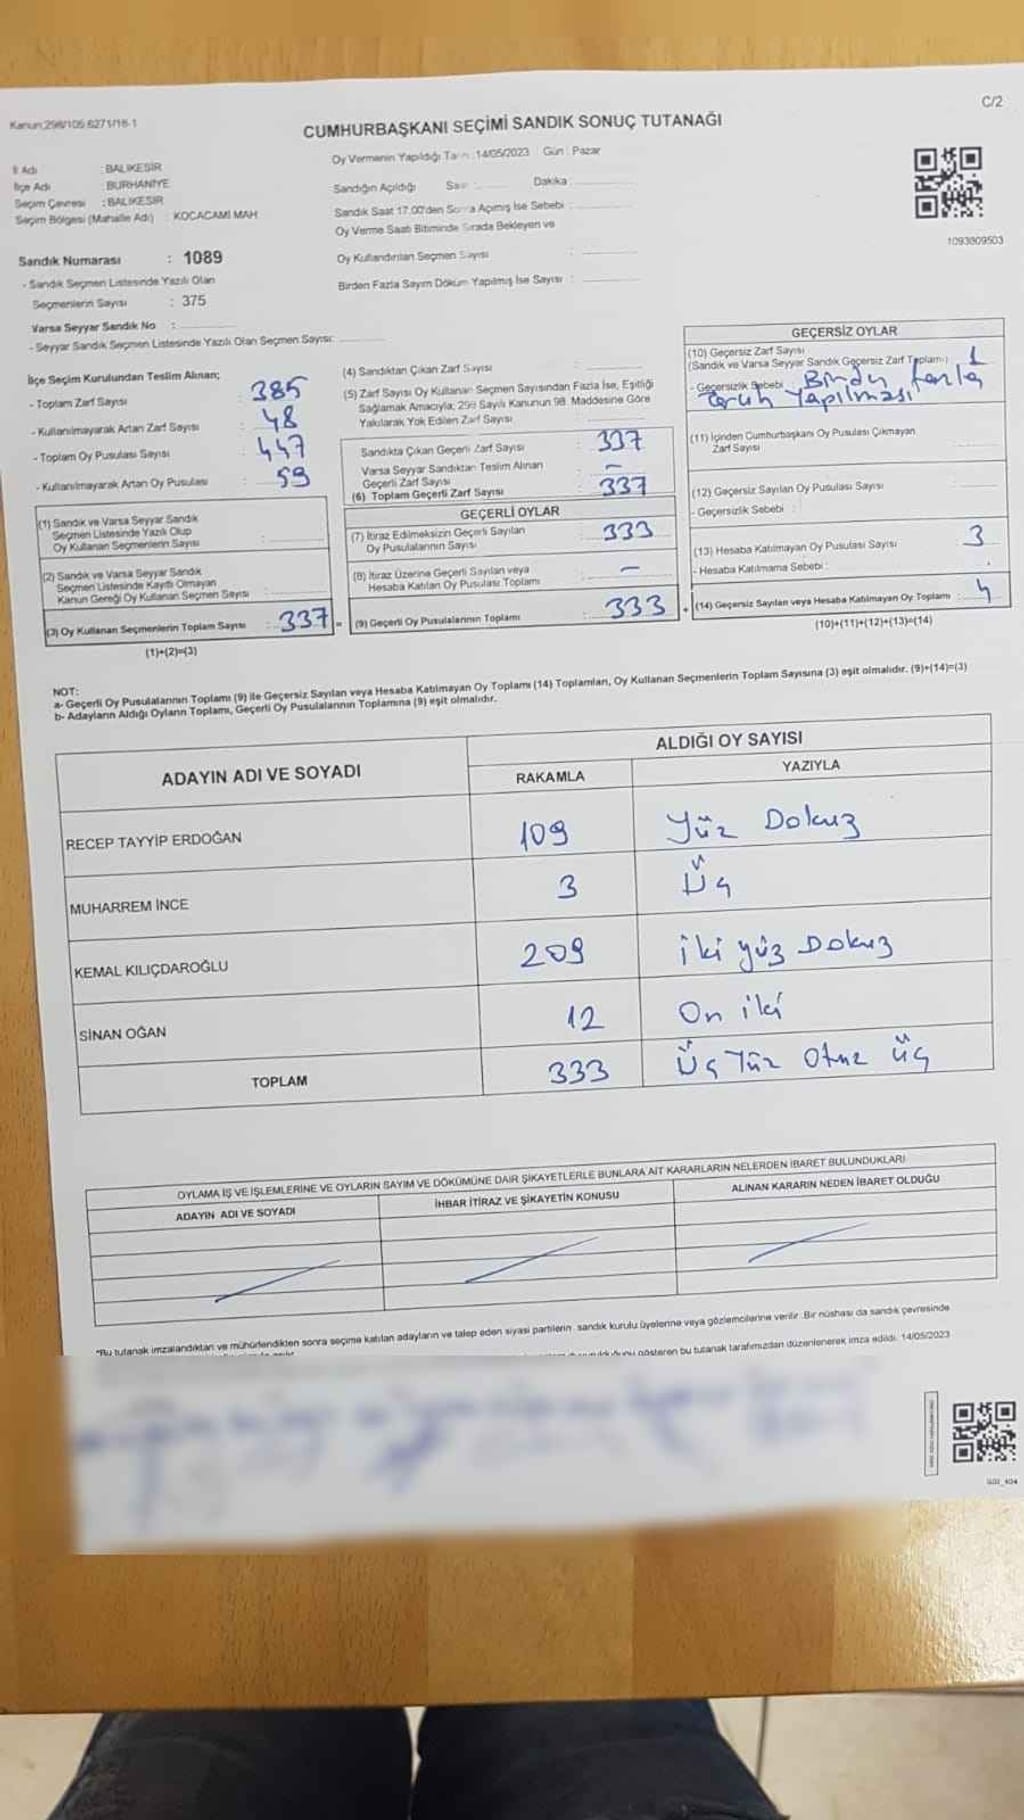 Kanun:298/105 6271/16-1
C/2
CUMHURBAŞKANI SEÇİMİ SANDIK SONUÇ TUTANAĞI
İl Adı : BALIKESİR
İlçe Adı : BURHANİYE
Seçim Çevresi : BALIKESİR
Seçim Bölgesi (Mahalle Adı) : KOCACAMİ MAH
Oy Vermenin Yapıldığı : 14/05/2023 Gün : Pazar
Sandığın Açıldığı Dakika :
Sandık Saat 17.00'den Açımış İse Sebebi :
Oy Verme Saati Bitiminde Sırada Bekleyen ve
Oy Kullandırılan Seçmen Sayısı :
Birden Fazla Sayım Döküm Yapılmış İse Sayısı :
1093809503
Sandık Numarası : 1089
- Sandık Seçmen Listesinde Yazılı Olan
Seçmenlerin Sayısı : 375
Varsa Seyyar Sandık No :
- Seyyar Sandık Seçmen Listesinde Yazılı Olan Seçmen Sayısı:
İlçe Seçim Kurulundan Teslim Alınan;
- Toplam Zarf Sayısı : 385
- Kullanılmayarak Artan Zarf Sayısı : 48
- Toplam Oy Pusulası Sayısı : 447
- Kullanılmayarak Artan Oy Pusulası : 59
(1) Sandık ve Varsa Seyyar Sandık
Seçmen Listesinde Yazılı Olup
Oy Kullanan Seçmenlerin Sayısı :
(2) Sandık ve Varsa Seyyar Sandık
Seçmen Listesinde Kayıtlı Olmayan
Kanun Gereği Oy Kullanan Seçmen Sayısı :
(3) Oy Kullanan Seçmenlerin Toplam Sayısı : 337 =
(1)+(2)=(3)
(4) Sandıktan Çıkan Zarf Sayısı :
(5) Zarf Sayısı Oy Kullanan Seçmen Sayısından Fazla İse, Eşitliği
Sağlamak Amacıyla, 298 Sayılı Kanunun 98. Maddesine Göre
Yakılarak Yok Edilen Zarf Sayısı :
Sandıkta Çıkan Geçerli Zarf Sayısı : 337
Varsa Seyyar Sandıktan Teslim Alınan
Geçerli Zarf Sayısı : –
(6) Toplam Geçerli Zarf Sayısı : 337
GEÇERLİ OYLAR
(7) İtiraz Edilmeksizin Geçerli Sayılan
Oy Pusulalarının Sayısı : 333
(8) İtiraz Üzerine Geçerli Sayılan veya
Hesaba Katılan Oy Pusulası Toplamı : –
(9) Geçerli Oy Pusulalarının Toplamı : 333 +
GEÇERSİZ OYLAR
(10) Geçersiz Zarf Sayısı
(Sandık ve Varsa Seyyar Sandık Geçersiz Zarf Toplamı) : 1
- Geçersizlik Sebebi : Birden fazla
Yapılması
(11) İçinden Cumhurbaşkanı Oy Pusulası Çıkmayan
Zarf Sayısı
(12) Geçersiz Sayılan Oy Pusulası Sayısı :
- Geçersizlik Sebebi :
(13) Hesaba Katılmayan Oy Pusulası Sayısı : 3
- Hesaba Katılmama Sebebi :
(14) Geçersiz Sayılan veya Hesaba Katılmayan Oy Toplamı : 4
(10)+(11)+(12)+(13)=(14)
NOT:
a- Geçerli Oy Pusulalarının Toplamı (9) ile Geçersiz Sayılan veya Hesaba Katılmayan Oy Toplamı (14) Toplamları, Oy Kullanan Seçmenlerin Toplam Sayısına (3) eşit olmalıdır. (9)+(14)=(3)
b- Adayların Aldığı Oyların Toplamı, Geçerli Oy Pusulalarının Toplamına (9) eşit olmalıdır.
ADAYIN ADI VE SOYADI
ALDIĞI OY SAYISI
RAKAMLA YAZIYLA
RECEP TAYYİP ERDOĞAN 109 Yüz Dokuz
MUHARREM İNCE 3 Üç
KEMAL KILIÇDAROĞLU 209 iki yüz Dokuz
SİNAN OĞAN 12 On iki
TOPLAM 333 Üç Yüz Otuz üç
OYLAMA İŞ VE İŞLEMLERİNE VE OYLARIN SAYIM VE DÖKÜMÜNE DAİR ŞİKAYETLERLE BUNLARA AİT KARARLARIN NELERDEN İBARET BULUNDUKLARI
ADAYIN ADI VE SOYADI İHBAR İTİRAZ VE ŞİKAYETİN KONUSU ALINAN KARARIN NEDEN İBARET OLDUĞU
*Bu tutanak imzalandıktan ve mühürlendikten sonra seçime katılan adayların ve talep eden siyasi partilerin sandık kurulu üyelerine veya gözlemcilerine verilir. Bir nüshası da sandık çevresinde
gösteren bu tutanak tarafımızdan düzenlenerek imza edildi. 14/05/2023